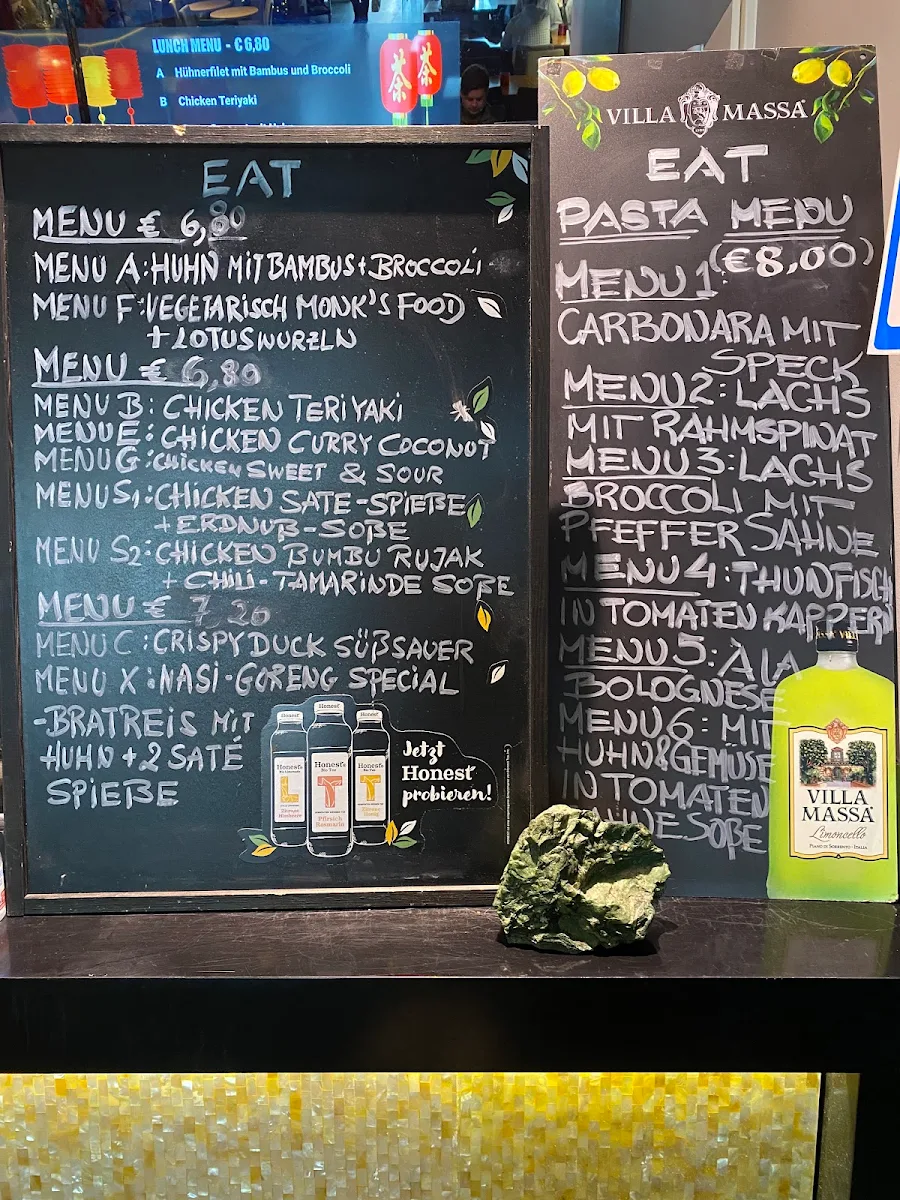 LUNCH MENU - € 6,80
A Hühnerfilet mit Bambus und Broccoli
B Chicken Teriyaki
茶
茶
EAT
MENU € 6,80
MENU A: HUHN MIT BAMBUS + BROCCOLI
MENU F: VEGETARISCH MONK'S FOOD
+ LOTUSWURZLN
MENU € 6,80
MENU B: CHICKEN TERIYAKI
MENU E: CHICKEN CURRY COCONUT
MENU G: CHICKEN SWEET & SOUR
MENU S1: CHICKEN SATE-SPIEßE
+ ERDNUß-SOßE
MENU S2: CHICKEN BUMBU RUJAK
+ CHILI-TAMARINDE SOßE
MENU € 7,20
MENU C: CRISPY DUCK SÜßSAUER
MENU X: NASI-GORENG SPECIAL
-BRATREIS MIT
HUHN + 2 SATÉ
SPIEßE
Honest
Honest
Honest
L
T
T
Pfirsich
Rosmarin
Jetzt
Honest
probieren!
VILLA MASSA
EAT
PASTA MENU
(€8,00)
MENU 1:
CARBONARA MIT
SPECK
MENU 2: LACHS
MIT RAHMSPINAT
MENU 3: LACHS
BROCCOLI MIT
PFEFFER SAHNE
MENU 4: THUNFISCH
IN TOMATEN KAPPERN
MENU 5: À LA
BOLOGNESE
MENU 6: MIT
HUHN & GEMÜSE
IN TOMATEN
SOßE
VILLA
MASSA
Limoncello
PIANO DI SORRENTO - ITALIA